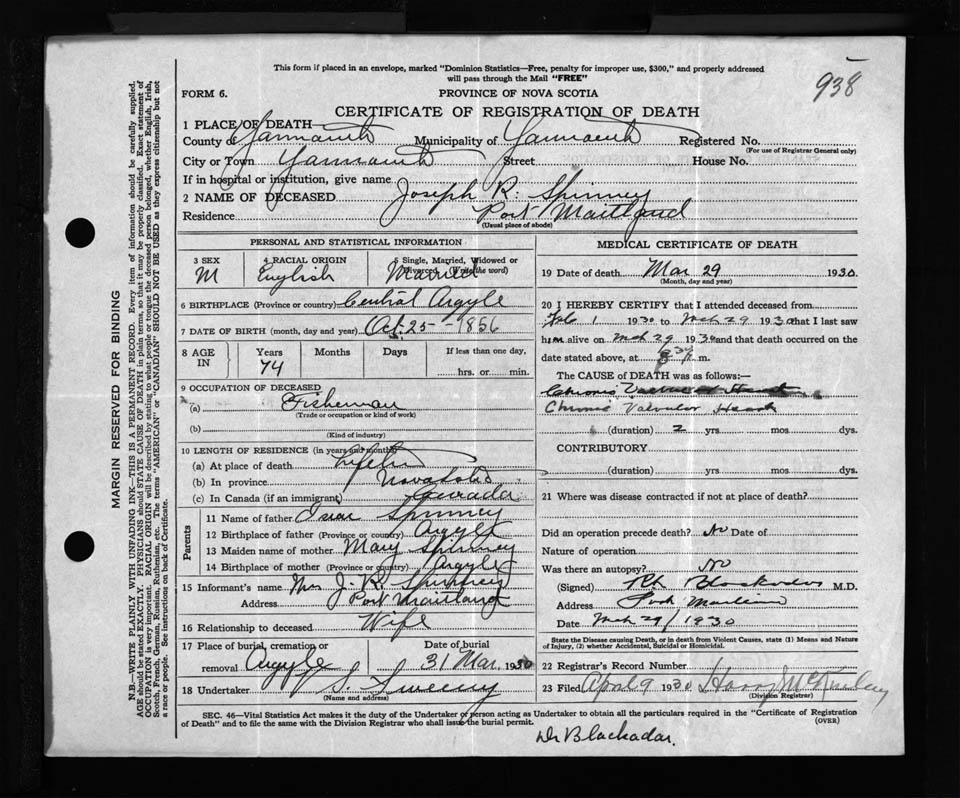 938
This form if placed in an envelope, marked "Dominion Statistics—Free, penalty for improper use, $300," and properly addressed
will pass through the Mail "FREE"
FORM 6. PROVINCE OF NOVA SCOTIA
CERTIFICATE OF REGISTRATION OF DEATH
1 PLACE OF DEATH—
County of Yarmouth Municipality of Yarmouth Registered No.
(For use of Registrar General only)
City or Town Yarmouth Street House No.
If in hospital or institution, give name
2 NAME OF DECEASED Joseph R. Spinney
Residence Port Maitland
(Usual place of abode)
PERSONAL AND STATISTICAL INFORMATION
3 SEX 4 RACIAL ORIGIN 5 Single, Married, Widowed or
Divorced. (Write the word)
M English Married
6 BIRTHPLACE (Province or country) Central Argyle
7 DATE OF BIRTH (month, day and year) Oct. 25 - 1856
8 AGE IN Years Months Days If less than one day,
74 hrs. or min.
9 OCCUPATION OF DECEASED
(a) Fisherman
(Trade or occupation or kind of work)
(b)
(Kind of industry)
10 LENGTH OF RESIDENCE (in years and months)
(a) At place of death
(b) In province Nova Scotia
(c) In Canada (if an immigrant) Canada
Parents
11 Name of father Spinney
12 Birthplace of father (Province or country) Argyle
13 Maiden name of mother Mary Spinney
14 Birthplace of mother (Province or country) Argyle
15 Informant's name Mrs J. R. Spinney
Address Port Maitland
16 Relationship to deceased Wife
17 Place of burial, cremation or Date of burial
removal Argyle 31 Mar. 1930
18 Undertaker S Sweeny
(Name and address)
MEDICAL CERTIFICATE OF DEATH
19 Date of death Mar 29 1930.
(Month, day and year)
20 I HEREBY CERTIFY that I attended deceased from
Feb 1 1930 to Mch 29 1930 that I last saw
him alive on Mch 29 1930 and that death occurred on the
date stated above, at 8 30 m.
The CAUSE of DEATH was as follows:—
Chronic Valvular Heart
(duration) 2 yrs mos dys.
CONTRIBUTORY
(duration) yrs mos dys.
21 Where was disease contracted if not at place of death?
Did an operation precede death? No Date of
Nature of operation
Was there an autopsy? No
(Signed) Blackadar M.D.
Address Port Maitland
Date Mch 29/1930
State the Disease causing Death, or in death from Violent Causes, state (1) Means and Nature
of Injury, (2) whether Accidental, Suicidal or Homicidal.
22 Registrar's Record Number
23 Filed April 9 1930 Harry McKinley
(Division Registrar)
SEC. 46—Vital Statistics Act makes it the duty of the Undertaker or person acting as Undertaker to obtain all the particulars required in the "Certificate of Registration
of Death" and to file the same with the Division Registrar who shall issue the burial permit. (OVER)
Dr Blackadar.
MARGIN RESERVED FOR BINDING
N.B.—WRITE PLAINLY WITH UNFADING INK—THIS IS A PERMANENT RECORD. Every item of information should be carefully supplied.
AGE should be stated EXACTLY. PHYSICIANS should STATE CAUSE OF DEATH in plain terms, so that it may be properly classified. Exact statement of
OCCUPATION is very important. RACIAL ORIGIN will be described by stating to what people or tongue the deceased person belonged, whether English, Irish,
Scotch, French, German, Russian, Ruthenian, etc. The terms "AMERICAN" or "CANADIAN" SHOULD NOT BE USED as they express citizenship but not
a race or people. See instructions on back of Certificate.